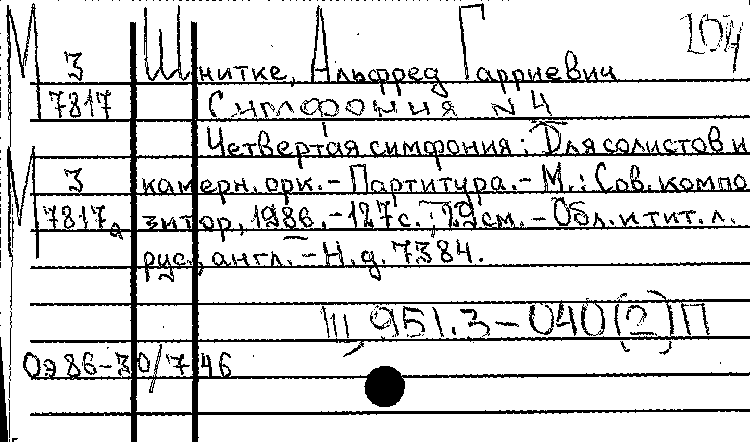 104
М З Шнитке, Альфред Гарриевич
7817 Симфония N 4
Четвертая симфония: Для солистов и
М З камерн. орк. - Партитура. - М.: Сов. компо
7817а зитор, 1986. - 127 с.; 29 см. - Обл. и тит. л.
рус., англ. - Н. д. 7384.
Ш 951.3-040(2)П
Оэ 86-30/746